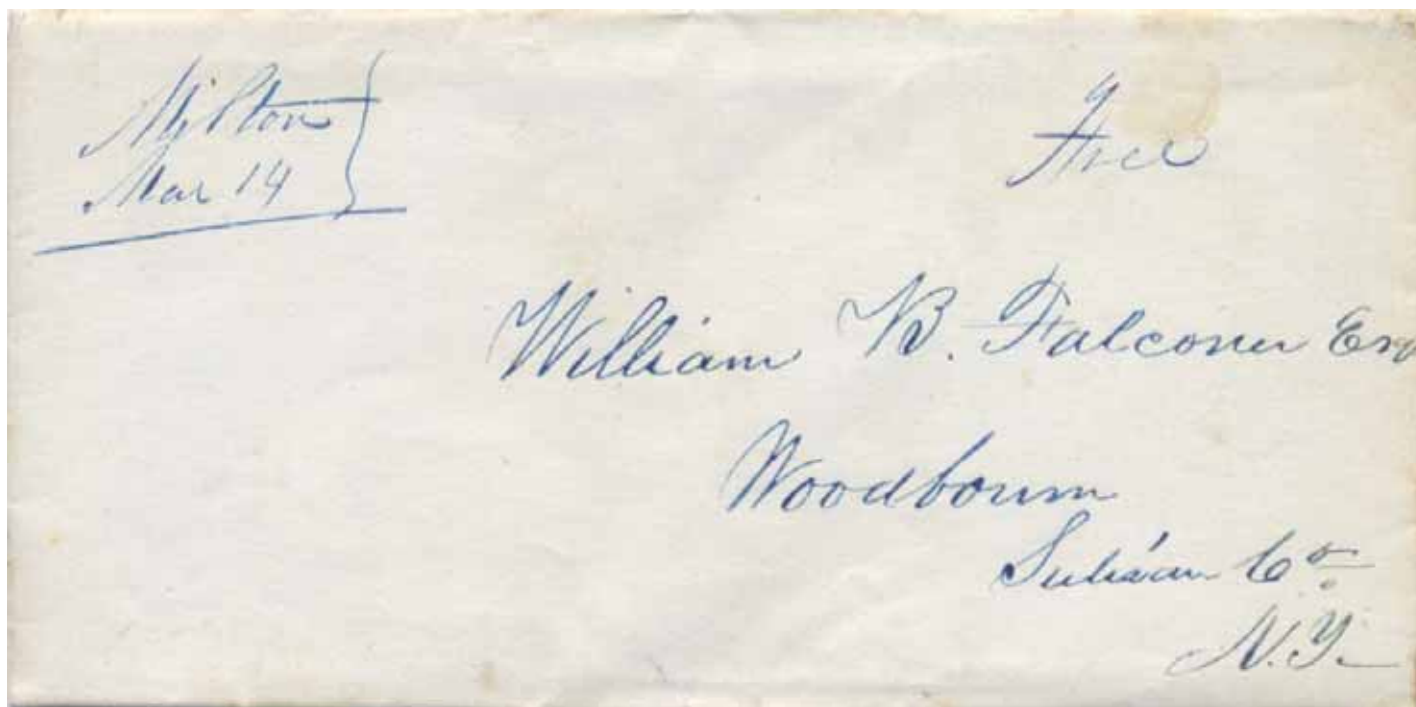 Milton
Mar 14
Free
William B. Falconer Esq
Woodbourn
Sulivan Co.
N.Y.